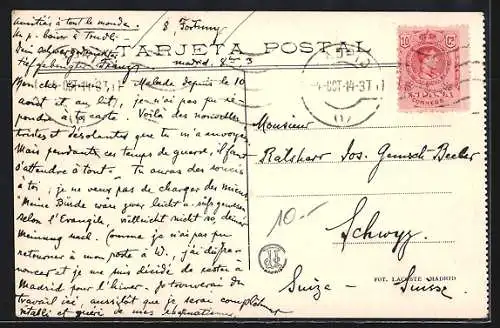 amitiés à tout le monde.
Un p. baiser à Trudli
Dein schwergeprüfter
tiefgebeugter Franz
8, Fortuny
TARJETA POSTAL
Madrid, 3
OCT-14-37
-OCT-14-37
10 Cs
CORREOS
Mon cher Malade depuis le 10
août et au lit, je n'ai pas pu ré-
pondre à ta carte. Voilà des nouvelles
tristes et désolantes que tu m'envoyes.
Mais pendant ces temps de guerre, il faut
s'attendre à tout. Tu auras des soucis
à toi, je ne veux pas te charger des miens
Meine Bürde wäre zwar leicht u. süss
selon l'Evangile, vielleicht nicht so, deiner
Meinung nach. Comme je n'ai pas pu
retourner à mon poste à W. j'ai dû
renoncer et je me suis décidé de rester à
Madrid pour l'hiver. Je trouverai du
travail ici, aussitôt que je serai complètem.
rétabli et guéri de mes
Monsieur
Ratsherr Jos. Gemsch-Beeler
10.-
Schwyz
Suiza - Suisse.
FOT. LACOSTE - MADRID